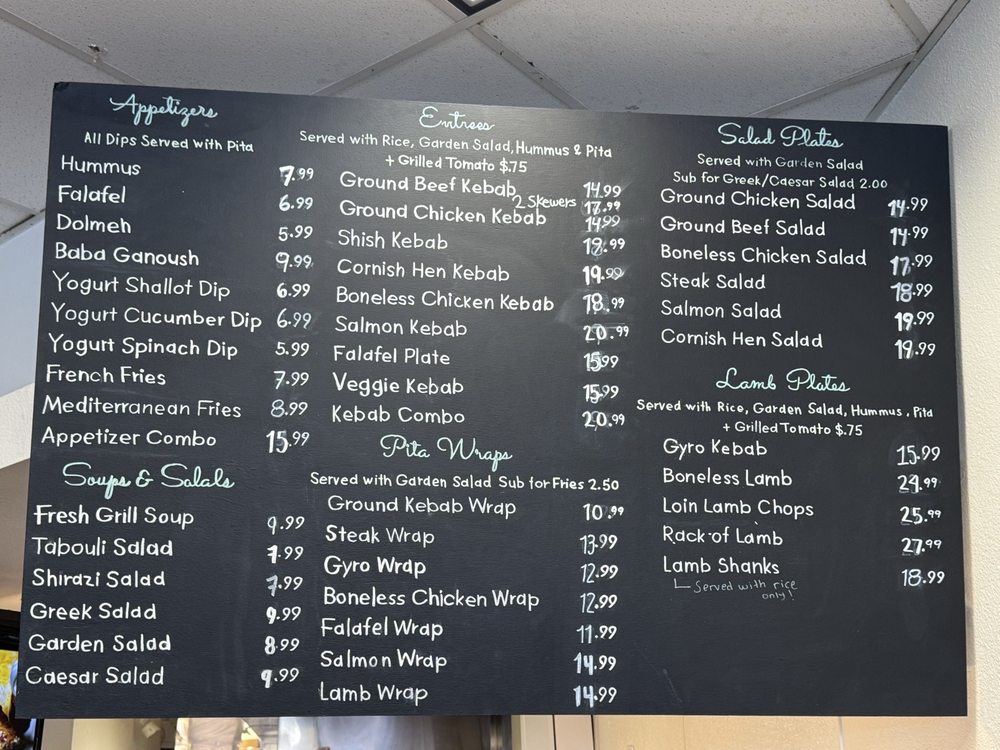 Appetizers
All Dips Served with Pita
Hummus 7.99
Falafel 6.99
Dolmeh 5.99
Baba Ganoush 9.99
Yogurt Shallot Dip 6.99
Yogurt Cucumber Dip 6.99
Yogurt Spinach Dip 5.99
French Fries 7.99
Mediterranean Fries 8.99
Appetizer Combo 15.99
Soups & Salads
Fresh Grill Soup 9.99
Tabouli Salad 7.99
Shirazi Salad 7.99
Greek Salad 9.99
Garden Salad 8.99
Caesar Salad 9.99
Entrees
Served with Rice, Garden Salad, Hummus & Pita
+ Grilled Tomato $.75
Ground Beef Kebab 14.99
2 Skewers 17.99
Ground Chicken Kebab 14.99
Shish Kebab 19.99
Cornish Hen Kebab 19.99
Boneless Chicken Kebab 18.99
Salmon Kebab 20.99
Falafel Plate 15.99
Veggie Kebab 15.99
Kebab Combo 20.99
Pita Wraps
Served with Garden Salad Sub for Fries 2.50
Ground Kebab Wrap 10.99
Steak Wrap 13.99
Gyro Wrap 12.99
Boneless Chicken Wrap 12.99
Falafel Wrap 11.99
Salmon Wrap 14.99
Lamb Wrap 14.99
Salad Plates
Served with Garden Salad
Sub for Greek/Caesar Salad 2.00
Ground Chicken Salad 14.99
Ground Beef Salad 14.99
Boneless Chicken Salad 17.99
Steak Salad 18.99
Salmon Salad 19.99
Cornish Hen Salad 19.99
Lamb Plates
Served with Rice, Garden Salad, Hummus, Pita
+ Grilled Tomato $.75
Gyro Kebab 15.99
Boneless Lamb
Loin Lamb Chops 25.99
Rack of Lamb 27.99
Lamb Shanks 18.99
Served with rice
only!